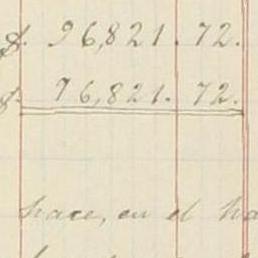 $. 96,821.72.
$. 96,821.72.
hace, en el ha